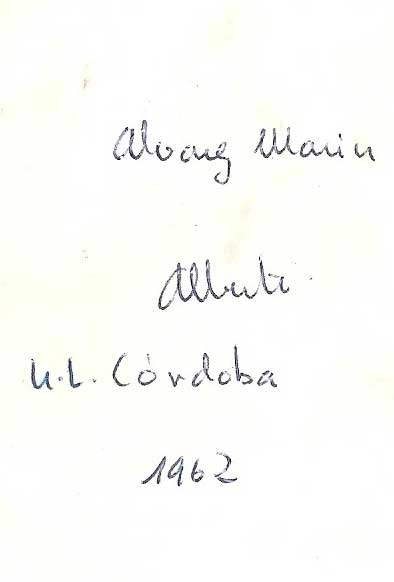 Alvarez Marin
Alberto
U.L. Córdoba
1962